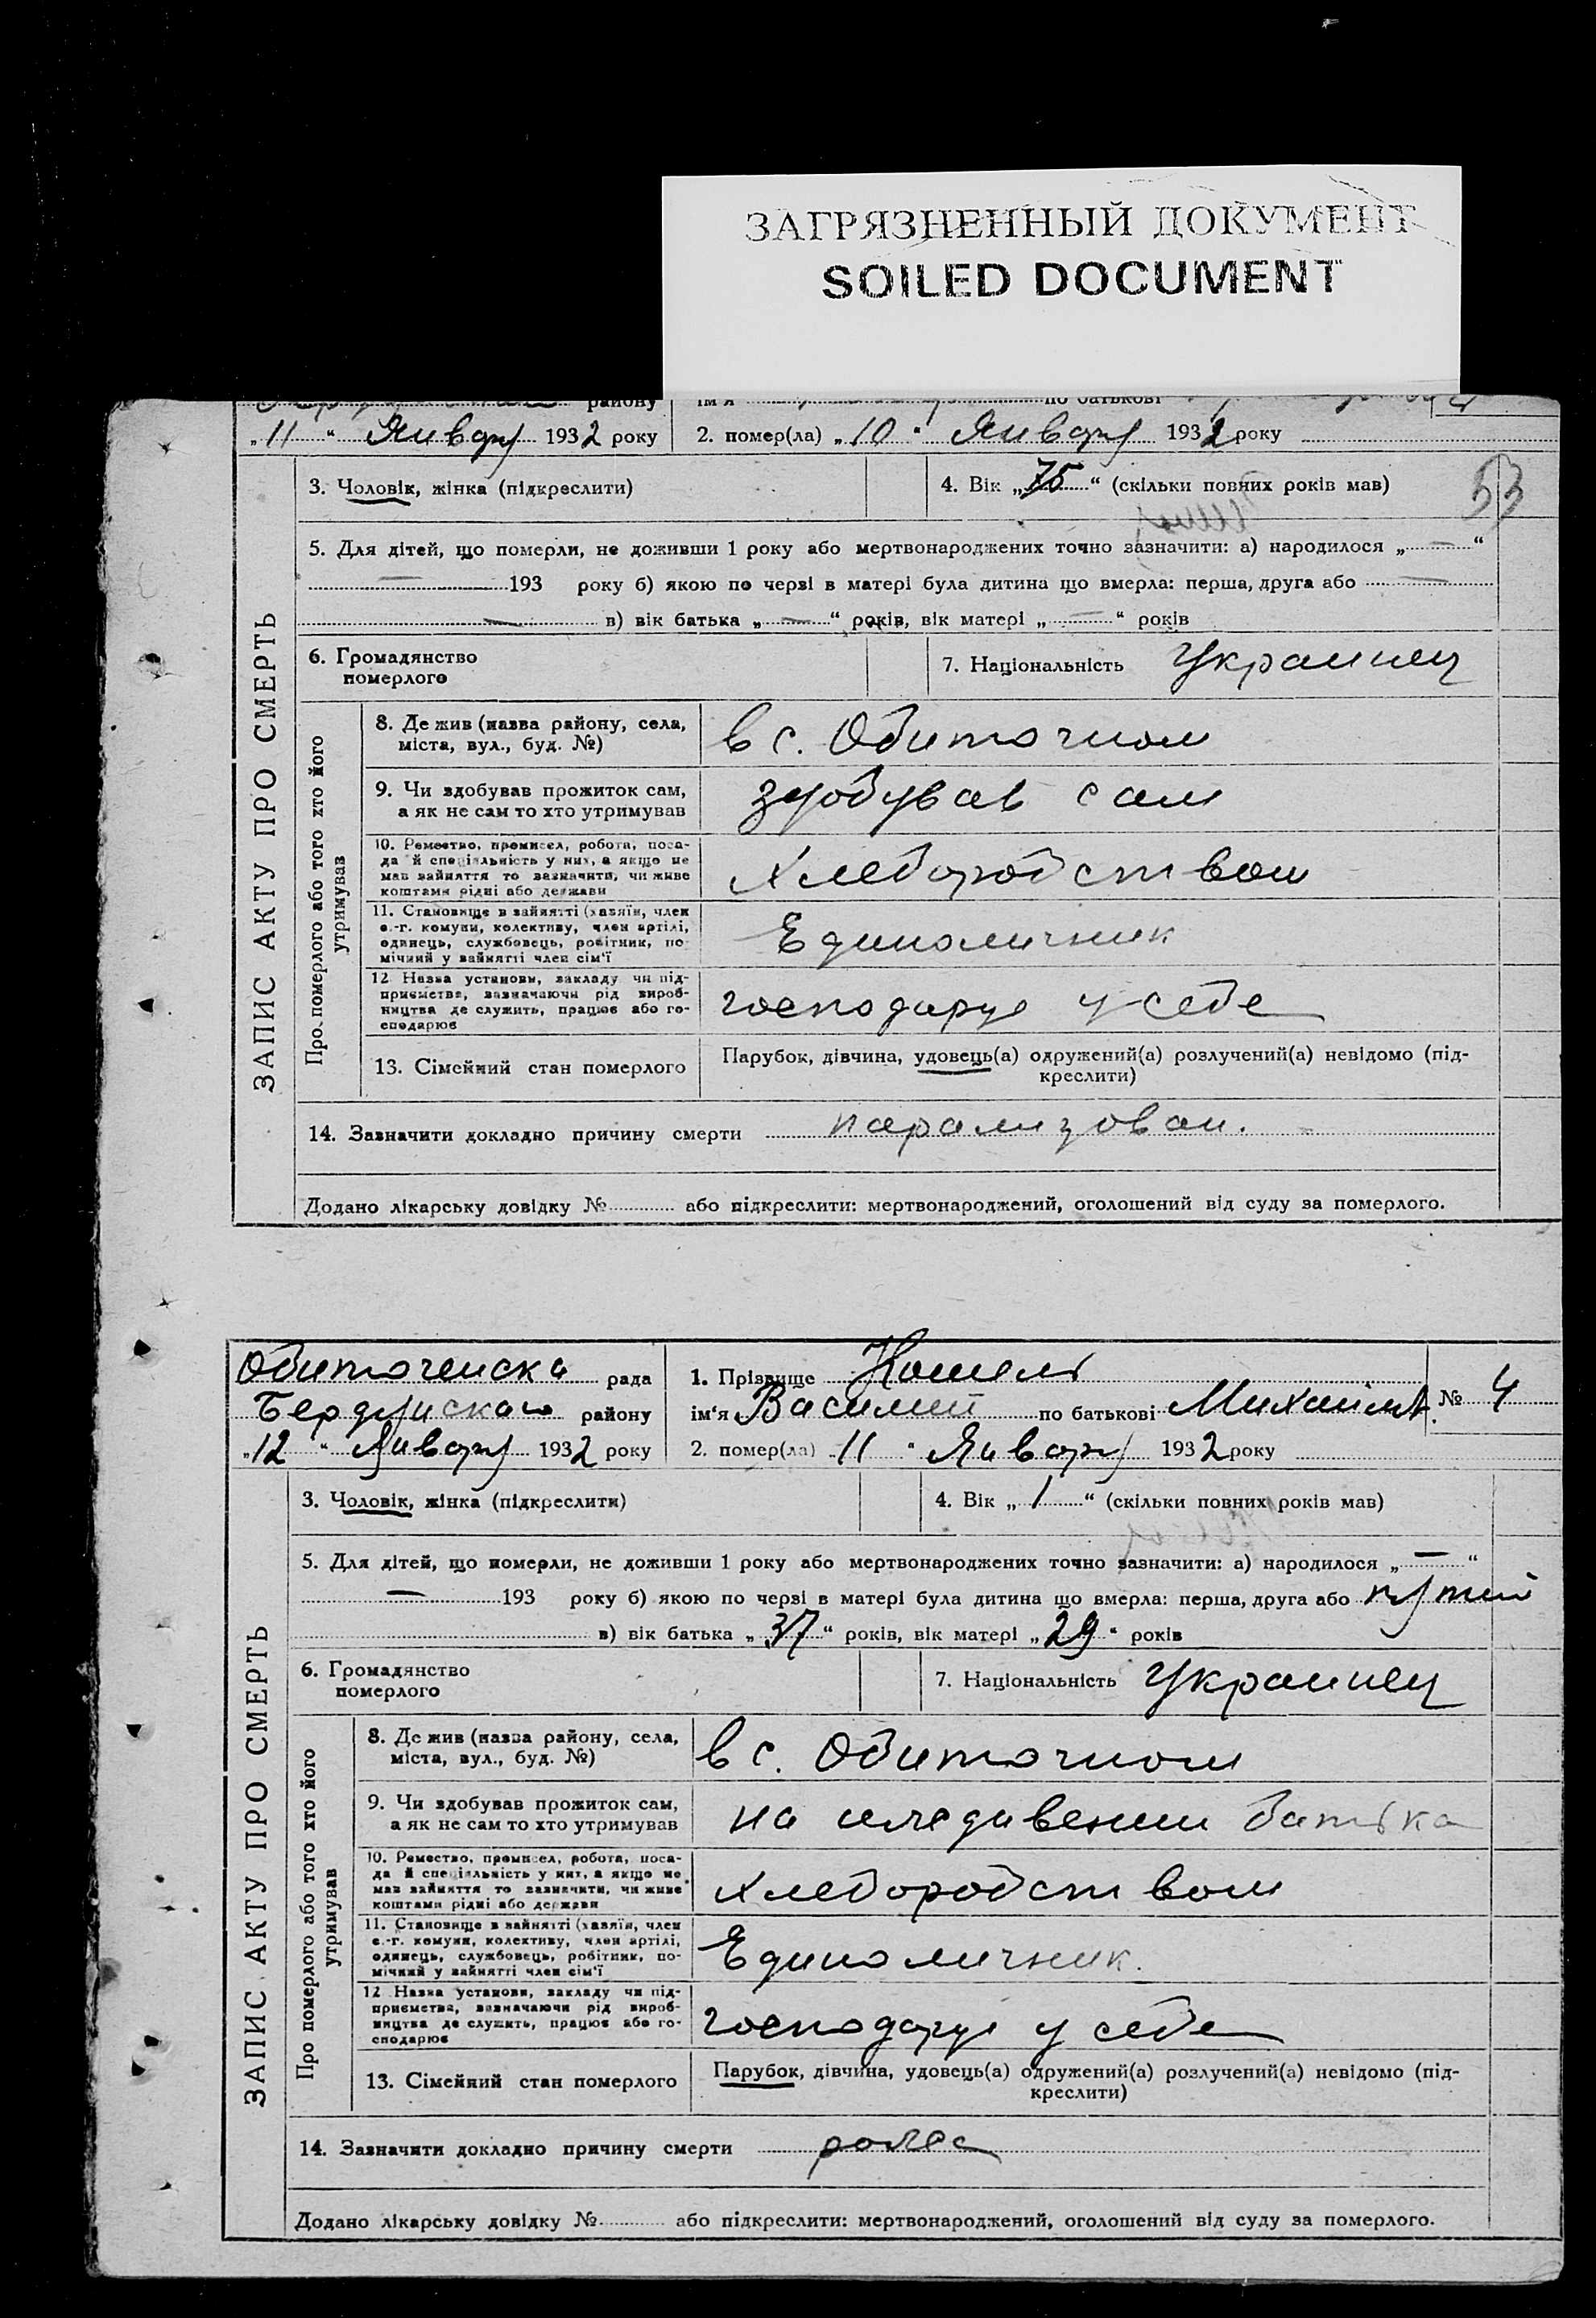 ЗАГРЯЗНЕННЫЙ ДОКУМЕНТ
SOILED DOCUMENT
району
ім'я по батькові
„11“ Январ 1932 року
2. помер(ла) „10“ Январ 1932 року
3. Чоловік, жінка (підкреслити)
4. Вік „75“ (скільки повних років мав)
53
5. Для дітей, що померли, не доживши 1 року або мертвонароджених точно зазначити: а) народилося „—“
— 193 року б) якою по черзі в матері була дитина що вмерла: перша, друга або —
— в) вік батька „—“ років, вік матері „—“ років
6. Громадянство
померлого
7. Національність Украинец
ЗАПИС АКТУ ПРО СМЕРТЬ
Про померлого або того хто його
утримував
8. Де жив (назва району, села,
міста, вул., буд. №)
в с. Обиточном
9. Чи здобував прожиток сам,
а як не сам то хто утримував
здобував сам
10. Ремество, промисел, робота, поса-
да й спеціяльність у них, а якщо не
мав зайняття то зазначити, чи живе
коштами рідні або держави
Хлеборобством
11. Становище в зайнятті (хазяїн, член
с.-г. комуни, колективу, член артілі,
одинець, службовець, робітник, по-
мічний у зайнятті член сім'ї
Единоличник
12 Назва установи, закладу чи під-
приємства, зазначаючи рід вироб-
ництва де служить, працює або го-
сподарює
господарує у себе
13. Сімейний стан померлого
Парубок, дівчина, удовець(а) одружений(а) розлучений(а) невідомо (під-
креслити)
14. Зазначити докладно причину смерти парализован.
Додано лікарську довідку № або підкреслити: мертвонароджений, оголошений від суду за померлого.
Обиточенска рада
1. Прізвище Кошель
Бердянскаго району
ім'я Василий по батькові Михайлов
№ 4
„12“ Январ 1932 року
2. помер(ла) „11“ Январ 1932 року
3. Чоловік, жінка (підкреслити)
4. Вік „1“ (скільки повних років мав)
5. Для дітей, що померли, не доживши 1 року або мертвонароджених точно зазначити: а) народилося „—“
— 193 року б) якою по черзі в матері була дитина що вмерла: перша, друга або пятий
в) вік батька „37“ років, вік матері „29“ років
6. Громадянство
померлого
7. Національність Украинец
ЗАПИС АКТУ ПРО СМЕРТЬ
Про померлого або того хто його
утримував
8. Де жив (назва району, села,
міста, вул., буд. №)
в с. Обиточном
9. Чи здобував прожиток сам,
а як не сам то хто утримував
на батька
10. Ремество, промисел, робота, поса-
да й спеціяльність у них, а якщо не
мав зайняття то зазначити, чи живе
коштами рідні або держави
Хлеборобством
11. Становище в зайнятті (хазяїн, член
с.-г. комуни, колективу, член артілі,
одинець, службовець, робітник, по-
мічний у зайнятті член сім'ї
Единоличник.
12 Назва установи, закладу чи під-
приємства, зазначаючи рід вироб-
ництва де служить, працює або го-
сподарює
господарує у себе
13. Сімейний стан померлого
Парубок, дівчина, удовець(а) одружений(а) розлучений(а) невідомо (під-
креслити)
14. Зазначити докладно причину смерти
Додано лікарську довідку № або підкреслити: мертвонароджений, оголошений від суду за померлого.